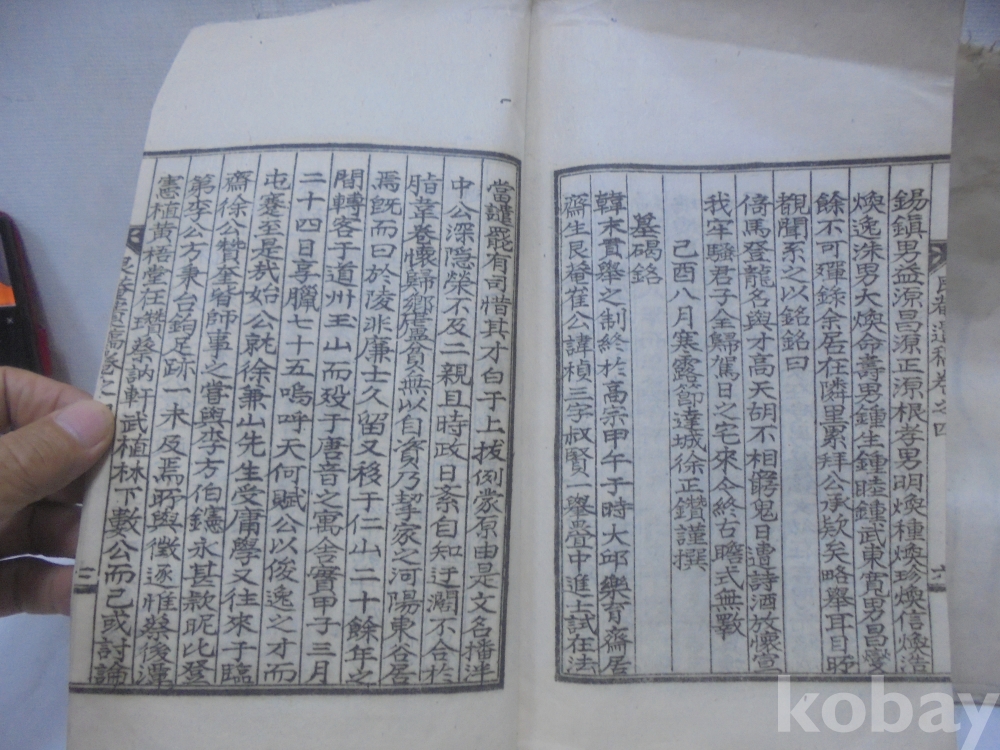 錫鎭男益源昌源正源根孝男明煥種煥珍煥信煥浩
煥逸洙男大煥命壽男鍾生鍾睦鍾武東寬男昌燮
餘不可殫錄余居在隣里累拜公承欵矣略舉耳目所
覩聞系之以銘銘曰
倚馬登龍名與才高天胡不相鬱鬼日遭詩酒放懷宣
我牢騷君子全歸篤日之宅來今終古瞻式無斁
己酉八月寒露節達城徐正鑽謹撰
墓碣銘
韓末貢舉之制終於高宗甲午于時大邱樂育齋居
齋生艮菴崔公諱楨三字叔賢一舉疊中進士試在法
當譴罷有司惜其才白于上拔例蒙原由是文名播洋
中公深隱榮不及二親且時政日紊自知迂濶不合於
脂韋卷懷歸鄉廬貧無以自資乃挈家之河陽東谷居
焉旣而曰於陵非廉士久留又移于仁山二十餘年之
間轉客于道州玉山而歿于唐音之寓舍實甲子三月
二十四日享臘七十五嗚呼天何賦公以俊逸之才而
屯蹇至是哉始公就徐兼山先生受庸學又往來于臨
齋徐公贊奎皆師事之嘗與李方伯𨯶永甚款昵比登
第李公方秉台鈞足跡一未及焉所與徵逐惟蔡後潭
憲植黃梧堂在瓚蔡訥軒武植林下數公而已或討論
kobay